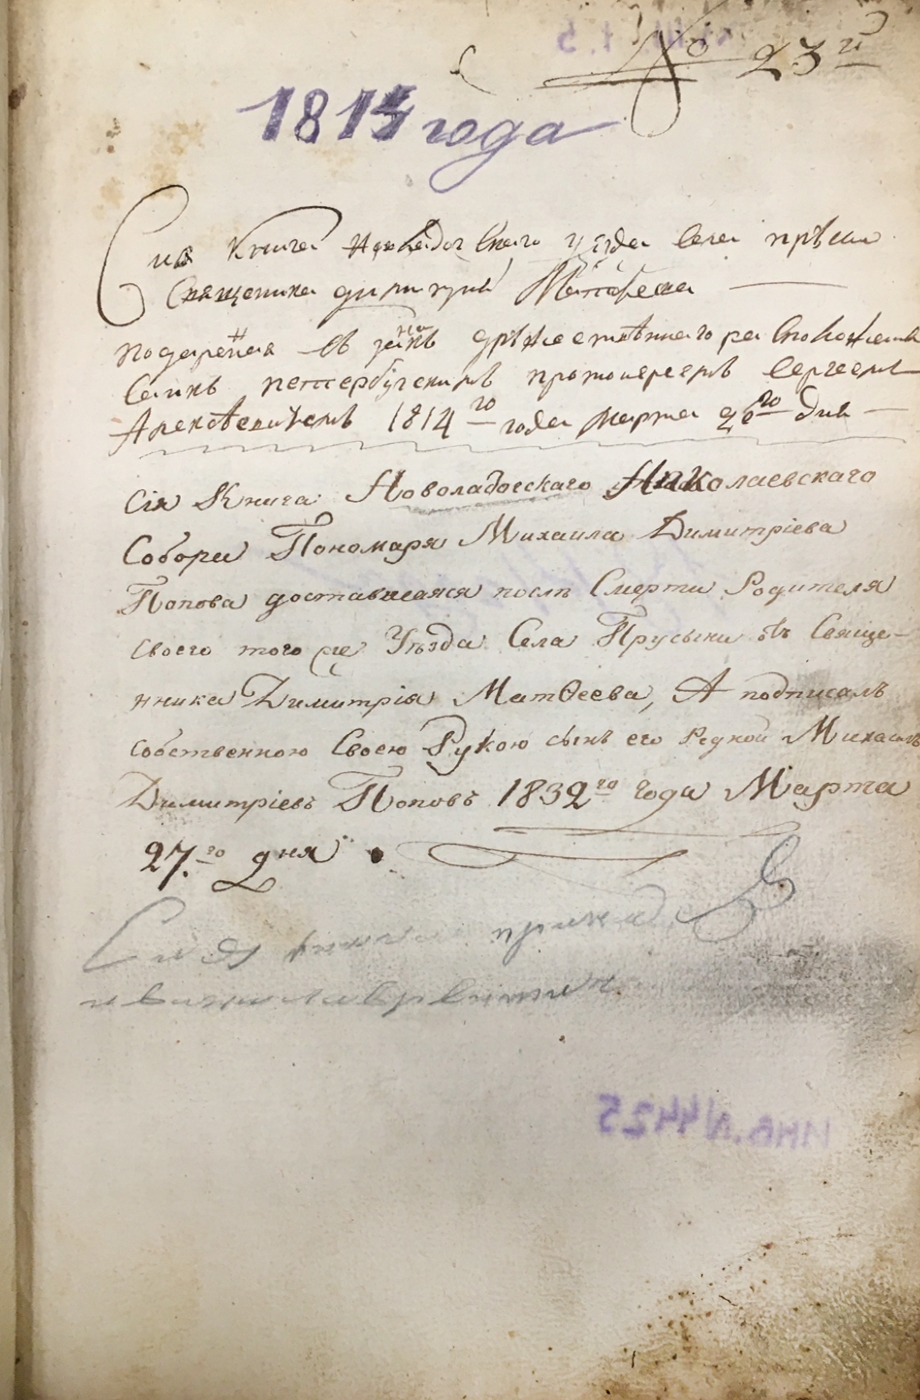 № 23й
1814 года
Сиа Книга Новоладогскаго уезда села
Священика димитриа Матфеева
подаренная въ знакъ
Санкъ петтербугскимъ протоиереемъ Сергеемъ
1814го года марта дня
Сія Книга Новоладогскаго Николаевскаго
Собора Пономаря Михаила Димитріева
Попова доставшаяся послѣ Смерти Родителя
своего того же Уѣзда Села Прусыни Свяще-
нника Димитрія Матѳеева, А подписалъ
собственною Своею Рукою сынъ его Родной Михаилъ
Димитріевъ Поповъ 1832го года Марта
27.го дня
Сиа книга
Инв. N4425